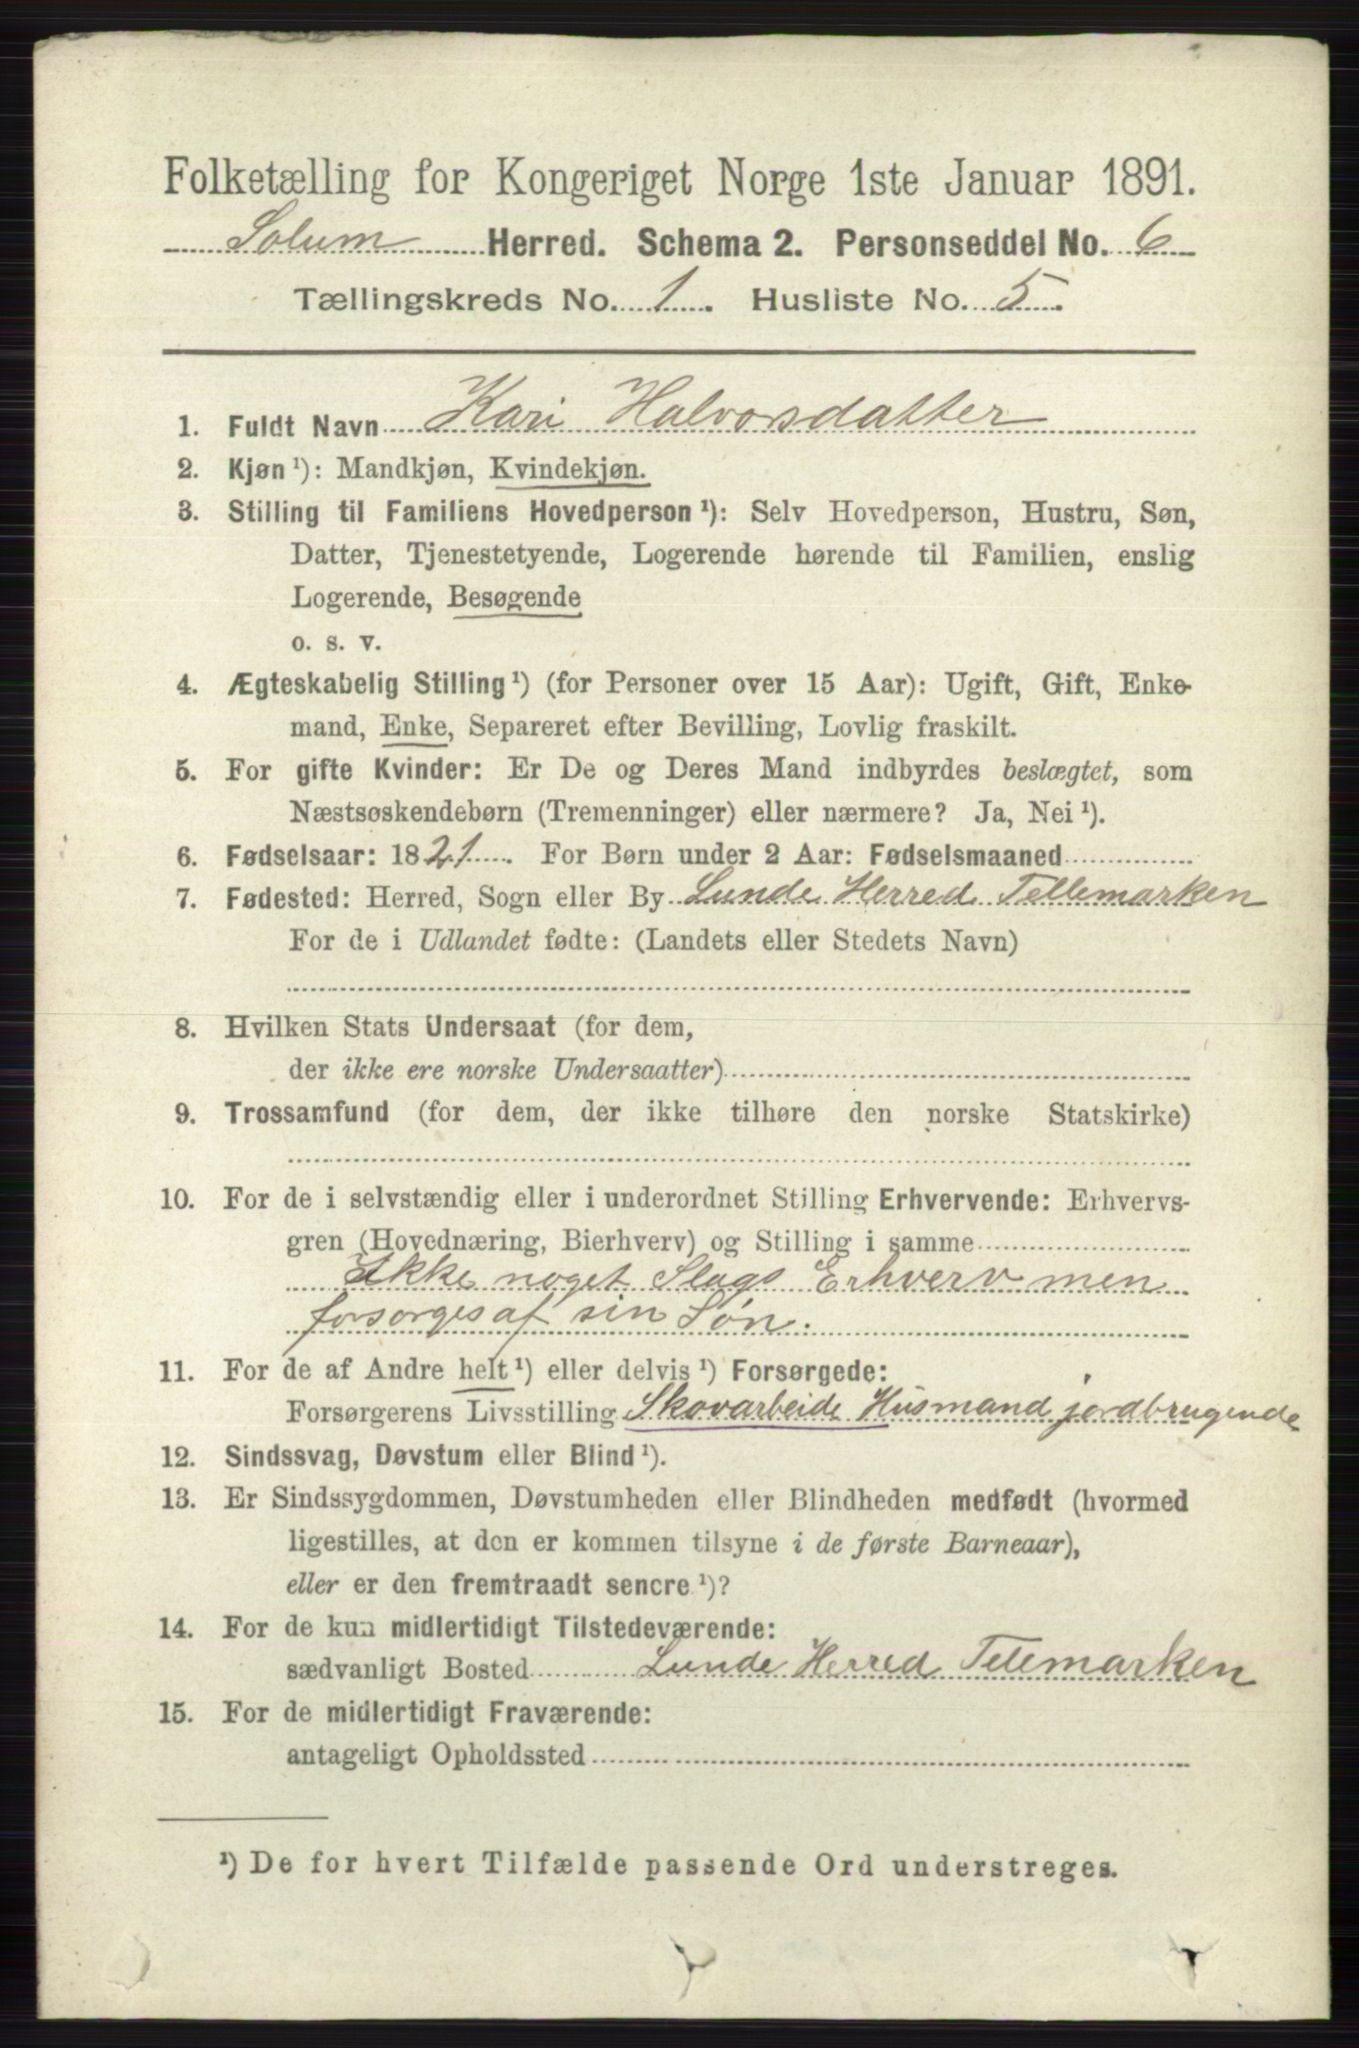 Folketælling for Kongeriget Norge 1ste Januar 1891.
Solum Herred. Schema 2. Personseddel No. 6
Tællingskreds No. 1. Husliste No. 5.
1. Fuldt Navn Kari Halvorsdatter
2. Kjøn ¹): Mandkjøn, Kvindekjøn.
3. Stilling til Familiens Hovedperson ¹): Selv Hovedperson, Hustru, Søn,
Datter, Tjenestetyende, Logerende hørende til Familien, enslig
Logerende, Besøgende
o. s. v.
4. Ægteskabelig Stilling ¹) (for Personer over 15 Aar): Ugift, Gift, Enke-
mand, Enke, Separeret efter Bevilling, Lovlig fraskilt.
5. For gifte Kvinder: Er De og Deres Mand indbyrdes beslægtet, som
Næstsøskendebørn (Tremenninger) eller nærmere? Ja, Nei ¹).
6. Fødselsaar: 1821. For Børn under 2 Aar: Fødselsmaaned
7. Fødested: Herred, Sogn eller By Lunde Herred Tellemarken
For de i Udlandet fødte: (Landets eller Stedets Navn)
8. Hvilken Stats Undersaat (for dem,
der ikke ere norske Undersaatter)
9. Trossamfund (for dem, der ikke tilhøre den norske Statskirke)
10. For de i selvstændig eller i underordnet Stilling Erhvervende: Erhvervs-
gren (Hovednæring, Bierhverv) og Stilling i samme
Ikke noget Slags Erhverv men
forsorges af sin Søn.
11. For de af Andre helt ¹) eller delvis ¹) Forsørgede:
Forsørgerens Livsstilling Skovarbeide Husmand jordbrugende
12. Sindssvag, Døvstum eller Blind ¹).
13. Er Sindssygdommen, Døvstumheden eller Blindheden medfødt (hvormed
ligestilles, at den er kommen tilsyne i de første Barneaar),
eller er den fremtraadt senere ¹)?
14. For de kun midlertidigt Tilstedeværende:
sædvanligt Bosted Lunde Herred Telemarken
15. For de midlertidigt Fraværende:
antageligt Opholdssted
¹) De for hvert Tilfælde passende Ord understreges.